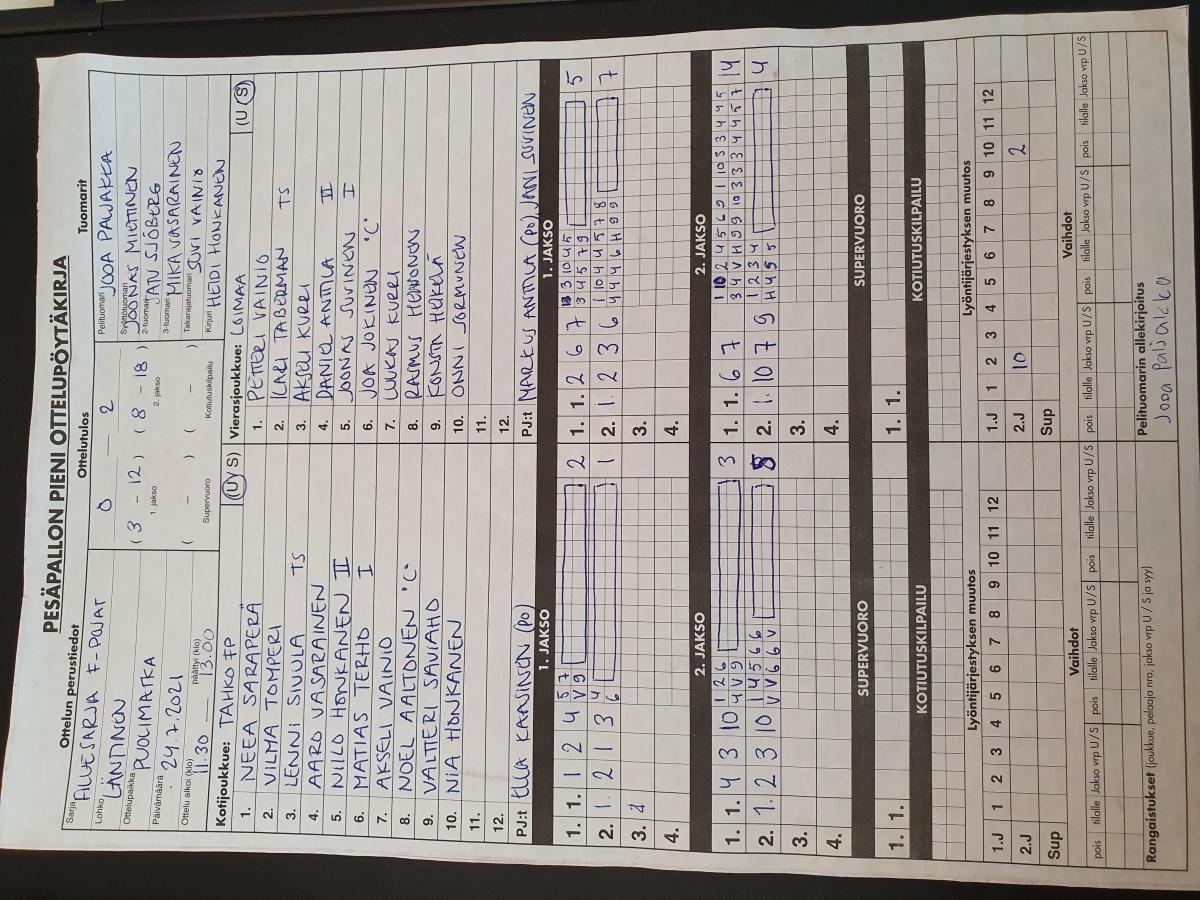 PESÄPALLON PIENI OTTELUPÖYTÄKIRJA
Ottelun perustiedot
Sarja ALUESARJA F-POJAT
Lohko LÄNTINEN
Ottelupaikka PUOLIMATKA
Päivämäärä 24.7.2021
Ottelu alkoi (klo) 11.30 päättyi (klo) 13.00
Ottelutulos
0 2
( 3 - 12 ) ( 8 - 18 )
1. jakso 2. jakso
( - ) ( - )
Supervuoro Kotiutuskilpailu
Tuomarit
Pelituomari JOOA PALJAKKA
Syöttötuomari JOONAS MIETTINEN
2-tuomari JAN SJÖBERG
3-tuomari MIKA VASARAINEN
Takarajatuomari SUVI VAINIO
Kirjuri HEIDI HONKANEN
Kotijoukkue: TAHKO FP (U/S)
1. NEEA SARAPERÄ
2. VILMA TOMPERI
3. LENNI SIVULA TS
4. AARO VASARAINEN
5. NIILO HONKANEN II
6. MATIAS TERHO I
7. AKSELI VAINIO
8. NOEL AALTONEN "C"
9. VALTTERI SAVIAHO
10. NIA HONKANEN
11.
12.
PJ:t ULLA KANSINEN (PO)
Vierasjoukkue: LOIMAA (U/S)
1. PETTERI VAINIO
2. ILARI TABERMAN TS
3. AKSELI KURRI
4. DANIEL ANTTILA II
5. JOONAS SUVINEN I
6. JOA JOKINEN "C"
7. LUUKAS KURRI
8. RASMUS HEINONEN
9. KONSTA HEIKELÄ
10. ONNI JORMUNEN
11.
12.
PJ:t MARKUS ANTTILA (PO), JANI SUVINEN
1. JAKSO
1. 1. 1 2 4 5 7 2
V 9
2. 1. 2 1 3 4 1
6
3. 4
4.
1. JAKSO
1. 1. 2 6 7 3 10 4 5 5
3 4 5 7 9
2. 1. 2 3 6 1 10 4 4 5 7 8 7
4 4 4 6 H 9 9
3.
4.
2. JAKSO
1. 1. 4 3 10 1 2 6 3
4 V 9
2. 1. 2 3 10 1 4 5 6 6 5
V V 6 6 V
3.
4.
2. JAKSO
1. 1. 6 7 1 10 2 4 5 6 9 1 10 3 3 4 4 5 14
3 4 V H 9 9 10 3 3 3 4 4 5 7
2. 1. 10 7 9 1 2 3 4 4
H 4 5 5
3.
4.
SUPERVUORO
1. 1.
SUPERVUORO
1. 1.
KOTIUTUSKILPAILU
KOTIUTUSKILPAILU
Lyöntijärjestyksen muutos
1.J 1 2 3 4 5 6 7 8 9 10 11 12
2.J
Sup
Lyöntijärjestyksen muutos
1.J 1 2 3 4 5 6 7 8 9 10 11 12
2.J 10 2
Sup
Vaihdot
pois tilalle Jakso vrp U/S pois tilalle Jakso vrp U/S pois tilalle Jakso vrp U/S
Vaihdot
pois tilalle Jakso vrp U/S pois tilalle Jakso vrp U/S pois tilalle Jakso vrp U/S
Rangaistukset (joukkue, pelaaja nro, jakso vrp U / S ja syy)
Pelituomarin allekirjoitus
Jooa Paljakka